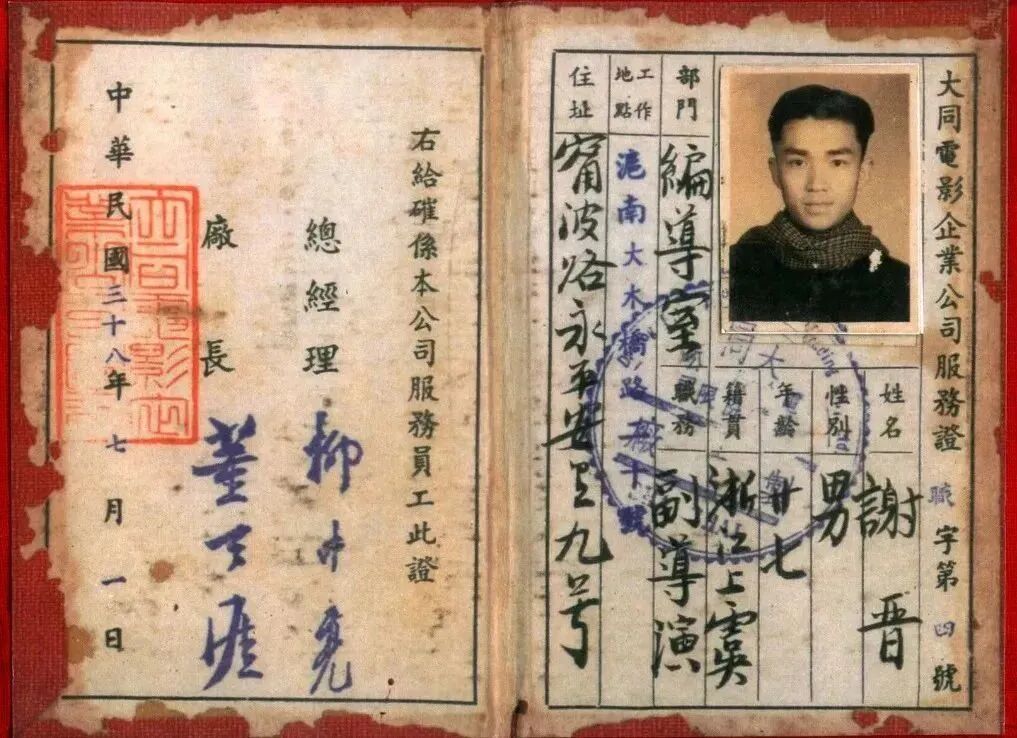 大同電影企業公司服務證 職字第四號
姓名 謝晋
性別 男
年齡 廿七
籍貫 浙江上虞
部門 編導室
職務 副導演
工作地點 滬南大木橋路 號
住址 甯波路永平安里九号
右給確係本公司服務員工此證
總經理 柳中亮
廠長 董天涯
中華民國三十八年七月一日